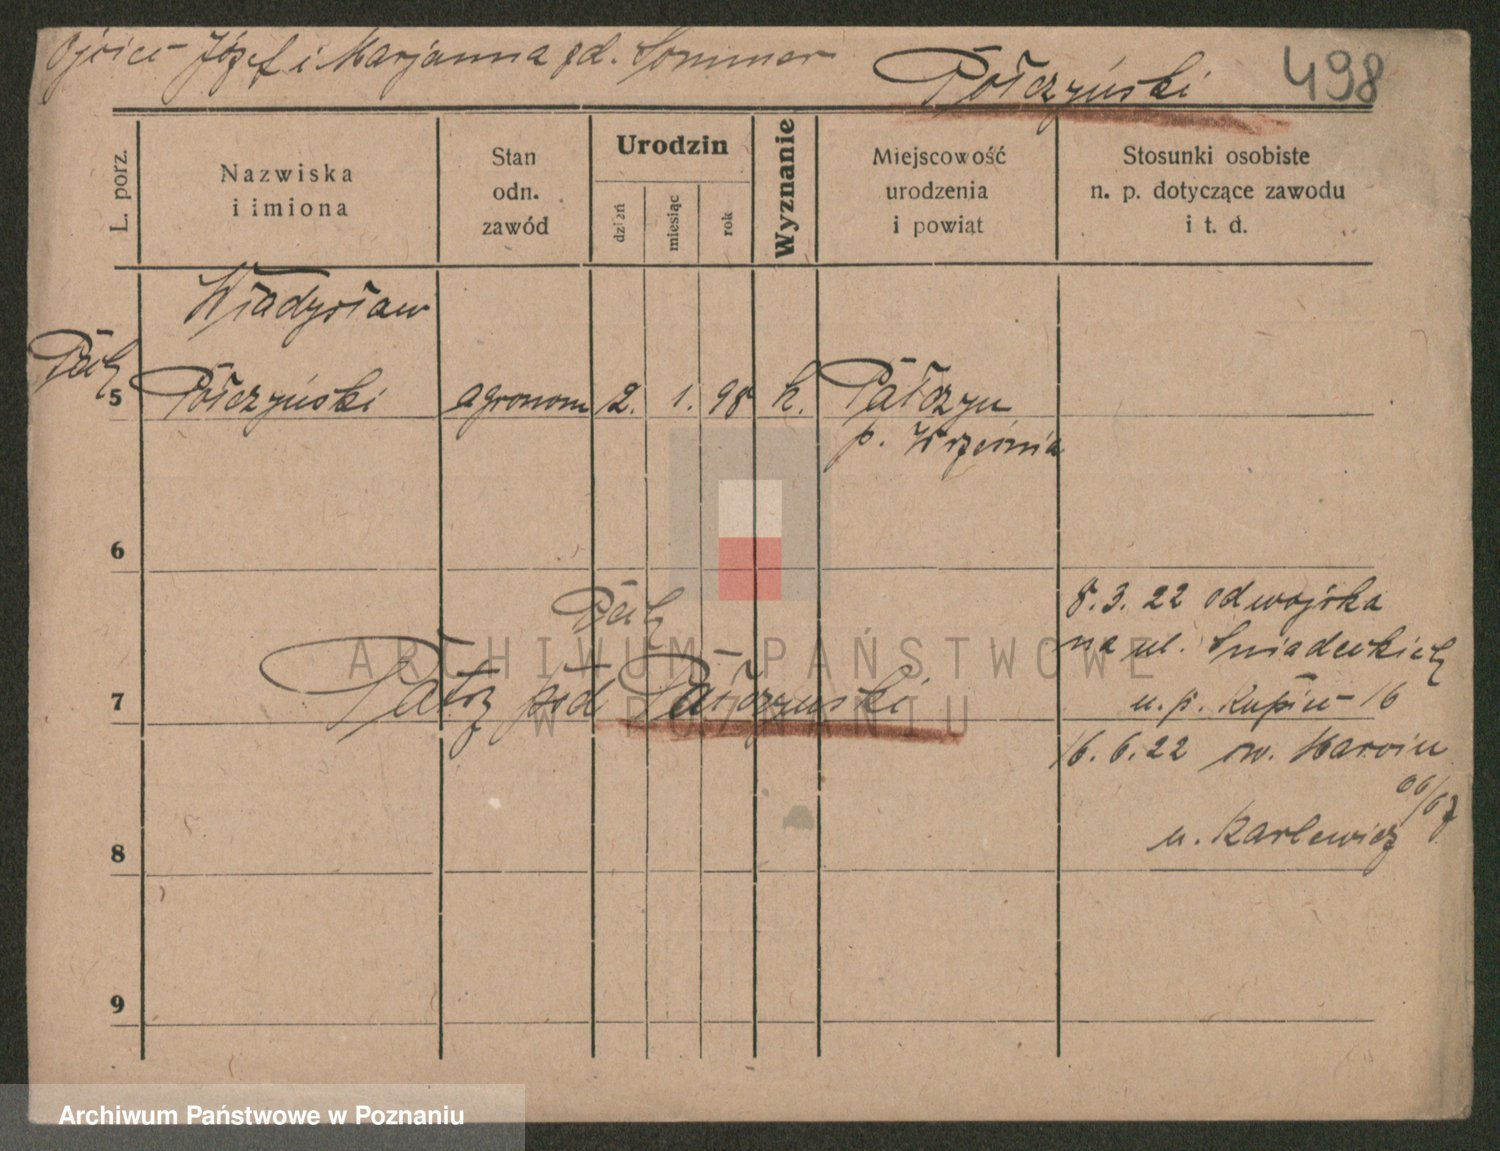 Ojciec Józef i Marjanna zd. Sommer
Połczyński 498
L. porz.
Nazwiska
i imiona
Stan
odn.
zawód
Urodzin
dzień
miesiąc
rok
Wyznanie
Miejscowość
urodzenia
i powiat
Stosunki osobiste
n. p. dotyczące zawodu
i t. d.
Władysław
5 Połczyński agronom 2. 1. 98 k. Pałczyn
p. Września
6
8.3.22 od wojska
na ul. Śniadeckich
u. p. 16
7 Patrz pod Pałczyński
16.6.22 św. Marcin
66/67
u. Karlewicz
8
9
ARCHIWUM PAŃSTWOWE
W POZNANIU
Archiwum Państwowe w Poznaniu